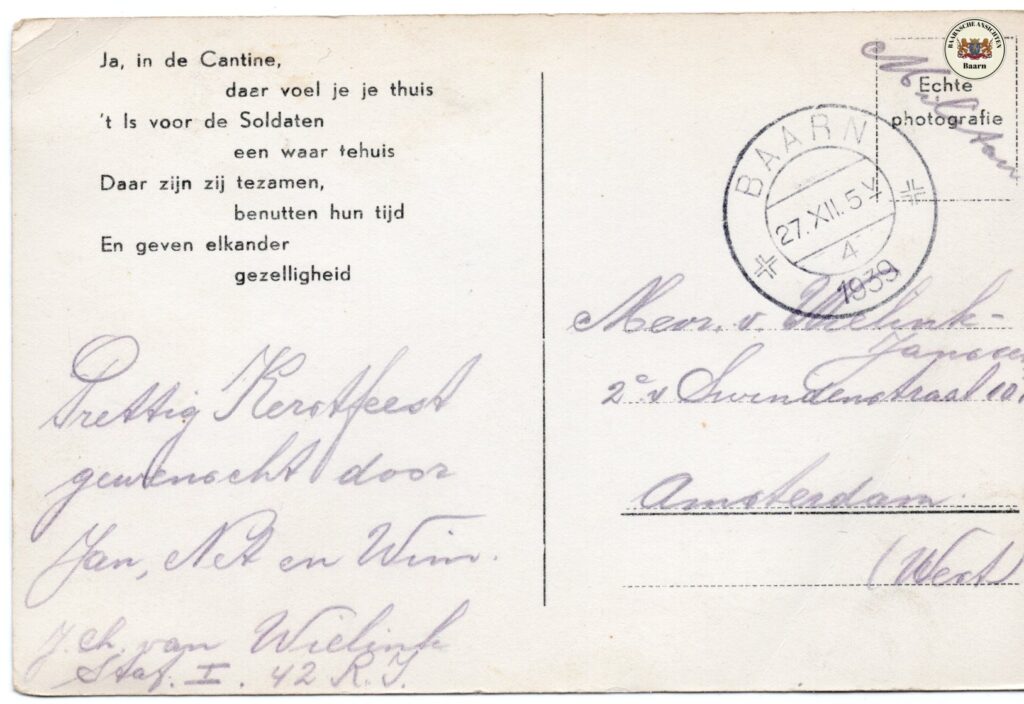 Ja, in de Cantine,
daar voel je je thuis
't Is voor de Soldaten
een waar tehuis
Daar zijn zij tezamen,
benutten hun tijd
En geven elkander
gezelligheid
Prettig Kerstfeest
gewenscht door
Jan, Net en Wim.
J. Ch. van Wielink
Staf. I. 42 R.I.
BAARNSCHE ANSICHTEN
Baarn
Echte
photografie
BAARN
27.XII.5V
4
1939
Mevr. v. Wielink-
Janssen
2e v Swindenstraat
Amsterdam.
(West